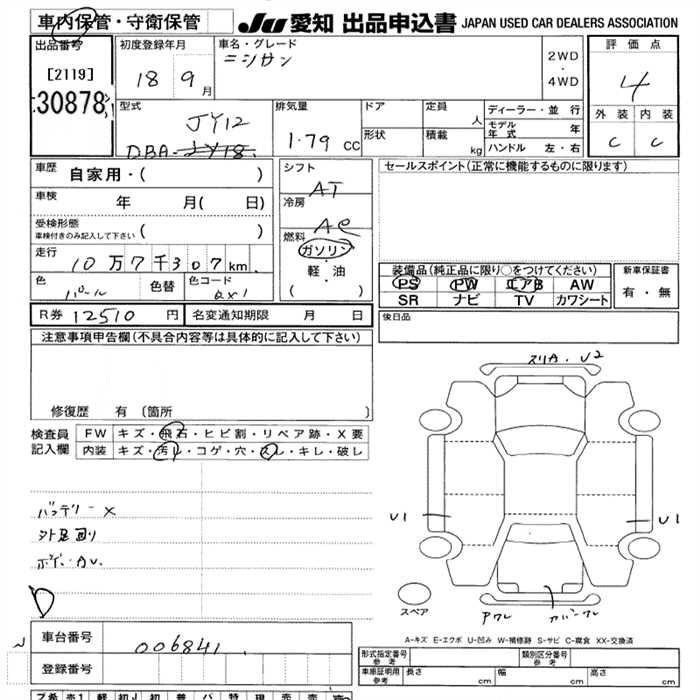 車内保管・守衛保管
JU 愛知 出品申込書 JAPAN USED CAR DEALERS ASSOCIATION
出品番号
[2119]
30878
初度登録年月
18 9月
車名・グレード
ニッサン
2WD
・
4WD
評価点
4
外装 内装
C C
型式
JY12
DBA-
排気量
1.79 cc
ドア
形状
定員 人
積載 kg
ディーラー・並行
モデル年式 年
ハンドル 左・右
車歴
自家用・( )
車検
年 月( 日)
受検形態
車検付きのみ記入して下さい ( )
走行
10万7千307km
色
パール
色替
色コード
QX1
シフト
AT
冷房
AC
燃料
ガソリン
・
軽・油
( )
セールスポイント(正常に機能するものに限ります)
装備品(純正品に限り○をつけてください)
PS PW エアB AW
SR ナビ TV カワシート
新車保証書
有・無
R券 12510 円
名変通知期限 月 日
後日品
注意事項申告欄(不具合内容等は具体的に記入して下さい)
修復歴 有 〔箇所 〕
検査員記入欄
FW キズ・飛石・ヒビ割・リペア跡・X要
内装 キズ・汚レ・コゲ・穴・スレ・キレ・破レ
バッテリー X
外足回り
ボデーAU.
スリA・U2
U1
U1
スペア
アワレ
カバーワレ
A-キズ E-エクボ U-凹み W-補修跡 S-サビ C-腐食 XX-交換済
車台番号
006841
登録番号
形式指定番号
参考
類別区分番号
参考
車庫証明用
参考
長さ cm
幅 cm
高さ cm